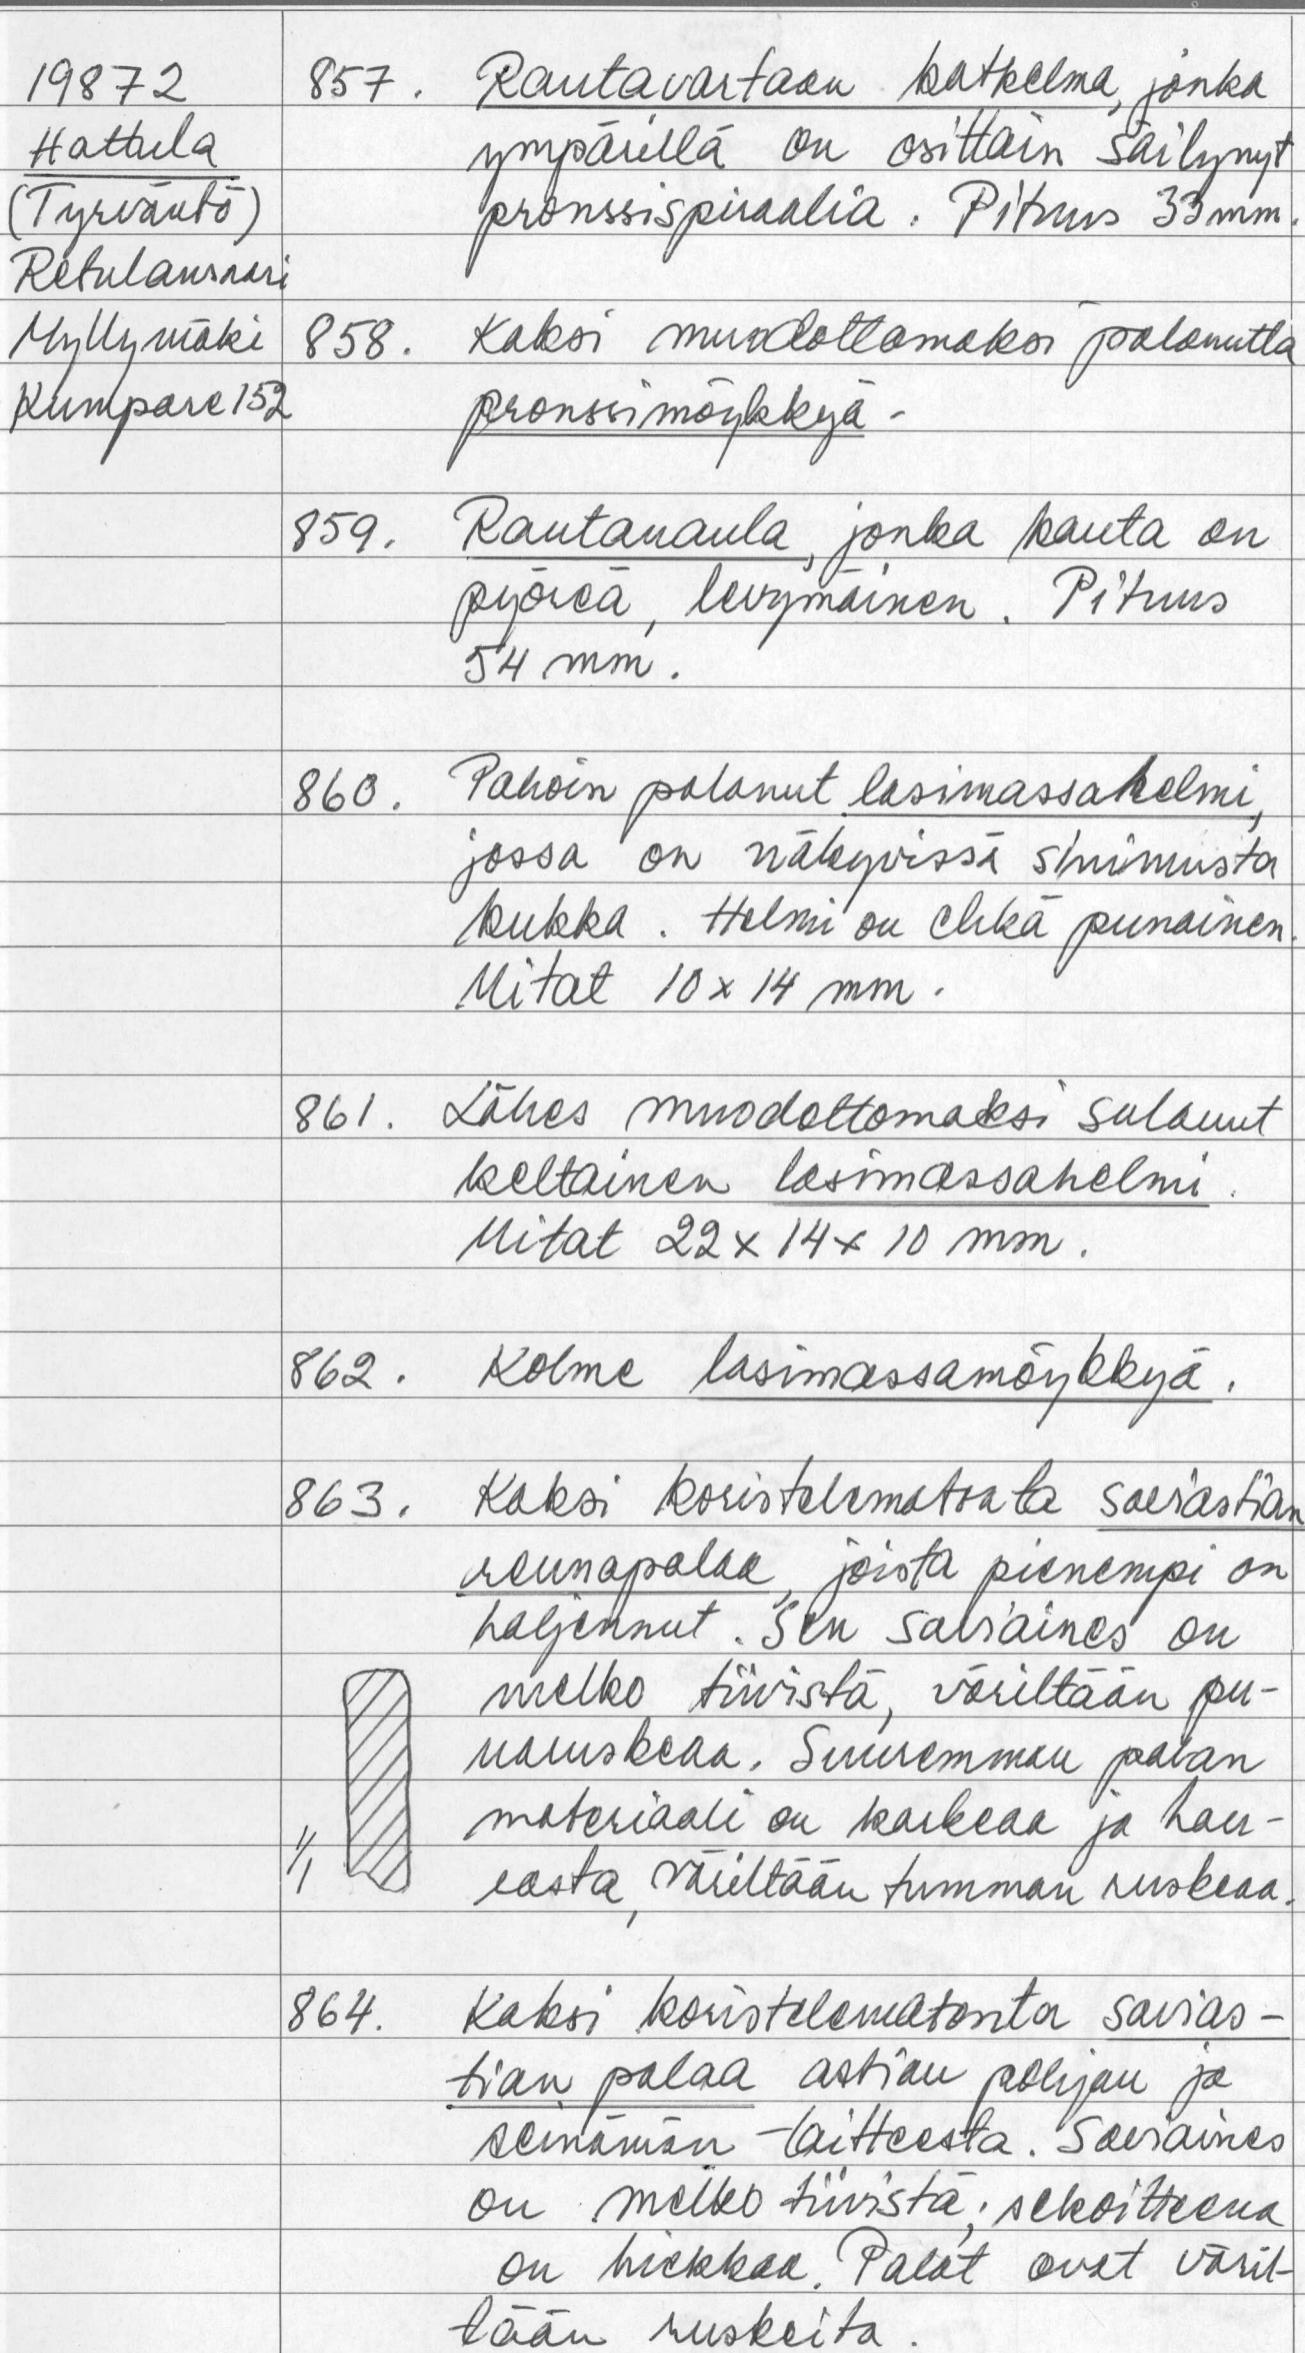 19872
Hattula
(Tyrväntö)
Retulansaari
Myllymäki
Kumpare 152
857. Rautavartaan katkelma, jonka
ympärillä on osittain säilynyt
pronssispiraalia. Pituus 33 mm.
858. Kaksi muodottomaksi palanutta
pronssimöykkyä.
859. Rautanaula, jonka kanta on
pyöreä, levymäinen. Pituus
54 mm.
860. Pahoin palanut lasimassahelmi,
jossa on näkyvissä sinimusta
kukka. Helmi on ehkä punainen.
Mitat 10 x 14 mm.
861. Lähes muodottomaksi sulanut
keltainen lasimassahelmi.
Mitat 22 x 14 x 10 mm.
862. Kolme lasimassamöykkyä.
863. Kaksi koristelematonta saviastian
reunapalaa, joista pienempi on
haljennut. Sen saviaines on
melko tiivistä, väriltään pu-
naruskeaa. Suuremman palan
materiaali on karkeaa ja hau-
rasta, väriltään tumman ruskeaa.
1/1
864. Kaksi koristelematonta savias-
tian palaa astian pohjan ja
seinämän taitteesta. Saviaines
on melko tiivistä; sekoitteena
on hiekkaa. Palat ovat väril-
tään ruskeita.